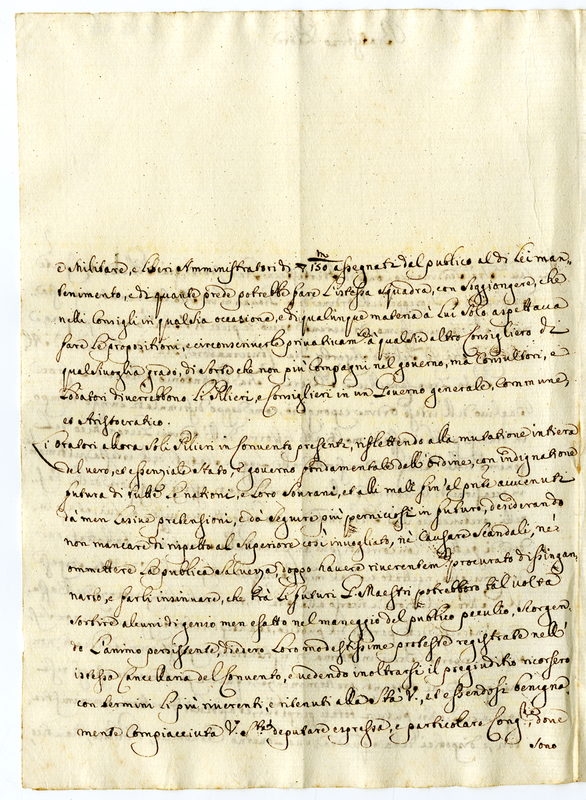 e Militare, e liberi Amministratori di ▽ 150 m assegnati dal publico al di Lei man,,
tenimento, e di quante prede potrebbe fare l'istessa squadra, con soggiongere, che
nelli Consigli in qualsia occasione, e di qualunque materia à Lui solo aspettava
fare le propozitioni, e circonscriverle privativam.te a qualsia altro Consigliero di
qualsivoglia grado, di sorte che non più Compagni nel governo, ma Consultori, e
Lodatori diverrebbono li Pilieri, e Consiglieri in un Governo generale, Commune,
et Aristocratico.
i Oratori allora soli Pilieri in Convento presenti, riflettendo alla mutatione intiera
del vero, et essenziale stato, e governo fondamentale dell'Ordine, con indignatione
futura di tutte le nationi, e Loro Sovrani, et alli mali fin'al pnte avvenuti
da men Lesive pretensioni, e da seguire più perniciosi in futuro, desiderando
non mancare di rispetto al Superiore così invogliato, nè Causare scandali, nè
ommettere la publica salvezza, doppo havere riverentem.te procurato disingan,,
narlo, e farli insinuare, che trà li futuri G. Maestri potrebbero tal volta
sortire alcuni di genio men esatto nel maneggio del publico peculio, scorgen,,
do l'animo persistente, diedero Loro modestissime proteste registrate nell'
istessa Cancellaria del Convento, e vedendo inoltrarsi il pregiuditio ricorsero
con termini li più riverenti, e ritenuti alla S.tà V., et essendosi benigna,,
mente Compiacciuta V. S.tà deputare espressa, e particolare Cong.ne, dove
sono